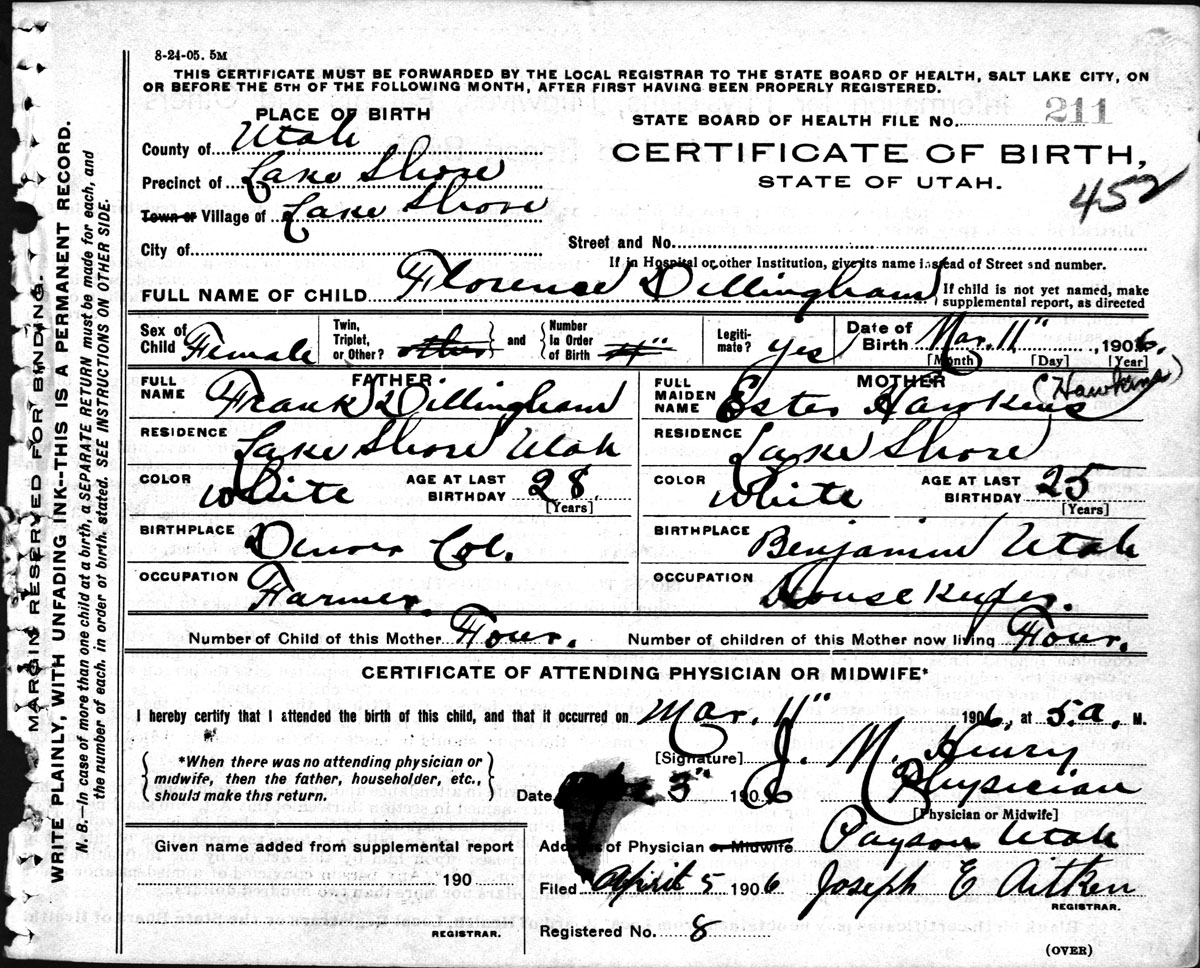 8-24-05. 5M
THIS CERTIFICATE MUST BE FORWARDED BY THE LOCAL REGISTRAR TO THE STATE BOARD OF HEALTH, SALT LAKE CITY, ON
OR BEFORE THE 5TH OF THE FOLLOWING MONTH, AFTER FIRST HAVING BEEN PROPERLY REGISTERED.
MARGIN RESERVED FOR BINDING.
WRITE PLAINLY, WITH UNFADING INK--THIS IS A PERMANENT RECORD.
N. B.—In case of more than one child at a birth, a SEPARATE RETURN must be made for each, and
the number of each, in order of birth, stated. SEE INSTRUCTIONS ON OTHER SIDE.
PLACE OF BIRTH
County of Utah
Precinct of Lake Shore
Town or Village of Lake Shore
City of
STATE BOARD OF HEALTH FILE No. 211
CERTIFICATE OF BIRTH,
STATE OF UTAH.
452
Street and No.
If in Hospital or other Institution, give its name instead of Street and number.
FULL NAME OF CHILD Florence Dillingham
If child is not yet named, make
supplemental report, as directed
Sex of Child Female
Twin, Triplet, or Other? other and Number In Order of Birth
Legitimate? yes
Date of Birth Mar. 11" , 1906.
[Month] [Day] [Year]
FATHER
FULL NAME Frank Dillingham
RESIDENCE Lake Shore Utah
COLOR White AGE AT LAST BIRTHDAY 28
[Years]
BIRTHPLACE Denver Col.
OCCUPATION Farmer.
MOTHER
FULL MAIDEN NAME Ester Hawkins (Hawkins)
RESIDENCE Lake Shore
COLOR White AGE AT LAST BIRTHDAY 25
[Years]
BIRTHPLACE Benjamin Utah
OCCUPATION House Keeper.
Number of Child of this Mother Four. Number of children of this Mother now living Four.
CERTIFICATE OF ATTENDING PHYSICIAN OR MIDWIFE*
I hereby certify that I attended the birth of this child, and that it occurred on Mar. 11" 1906, at 5.a. M.
*When there was no attending physician or
midwife, then the father, householder, etc.,
should make this return.
[Signature] J. M. Henry
Physician
[Physician or Midwife]
Date 3" 1906
Address of Physician or Midwife Payson Utah
Given name added from supplemental report
190
REGISTRAR.
Filed April 5 1906 Joseph E Aitken
REGISTRAR.
Registered No. 8
(OVER)